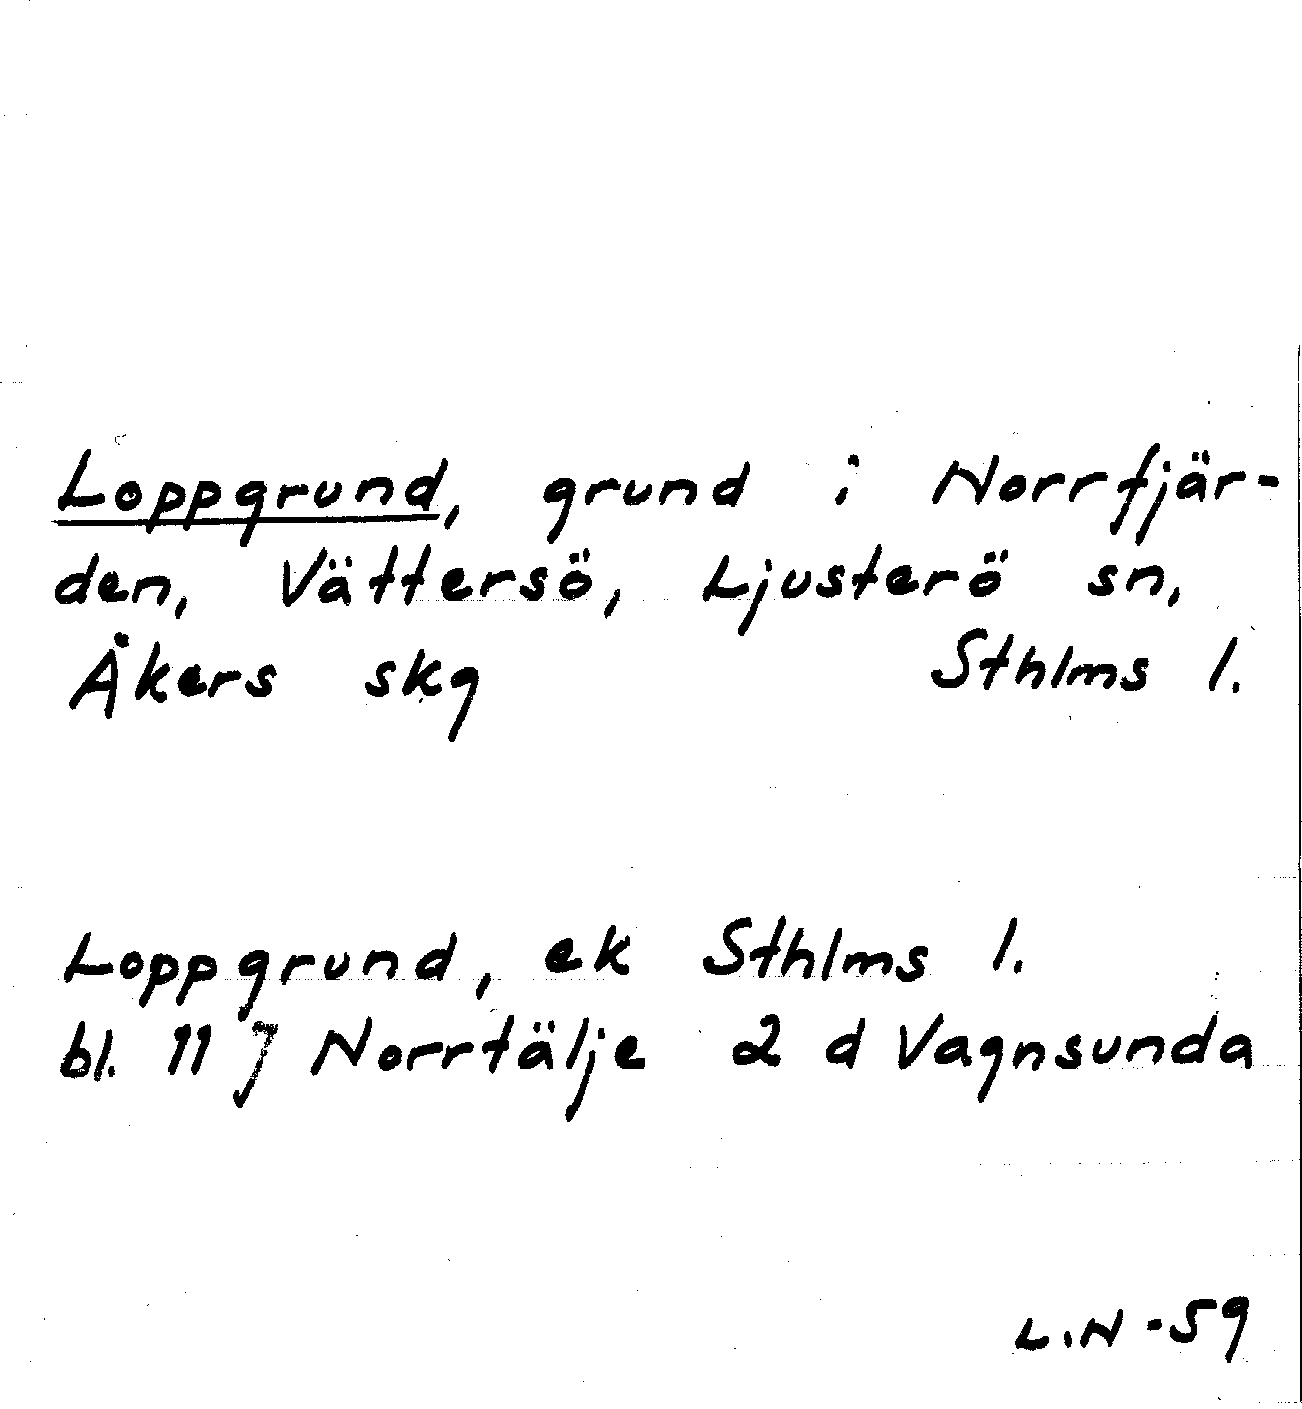 Loppgrund, grund i Norrfjär-
den, Vättersö, Ljusterö sn,
Åkers skg Sthlms l.
Loppgrund, ek Sthlms l.
bl. 11 J Norrtälje 2 d Vagnsunda
L.N -59